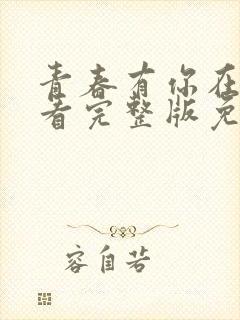 青春有你在
看完整版免
容自若